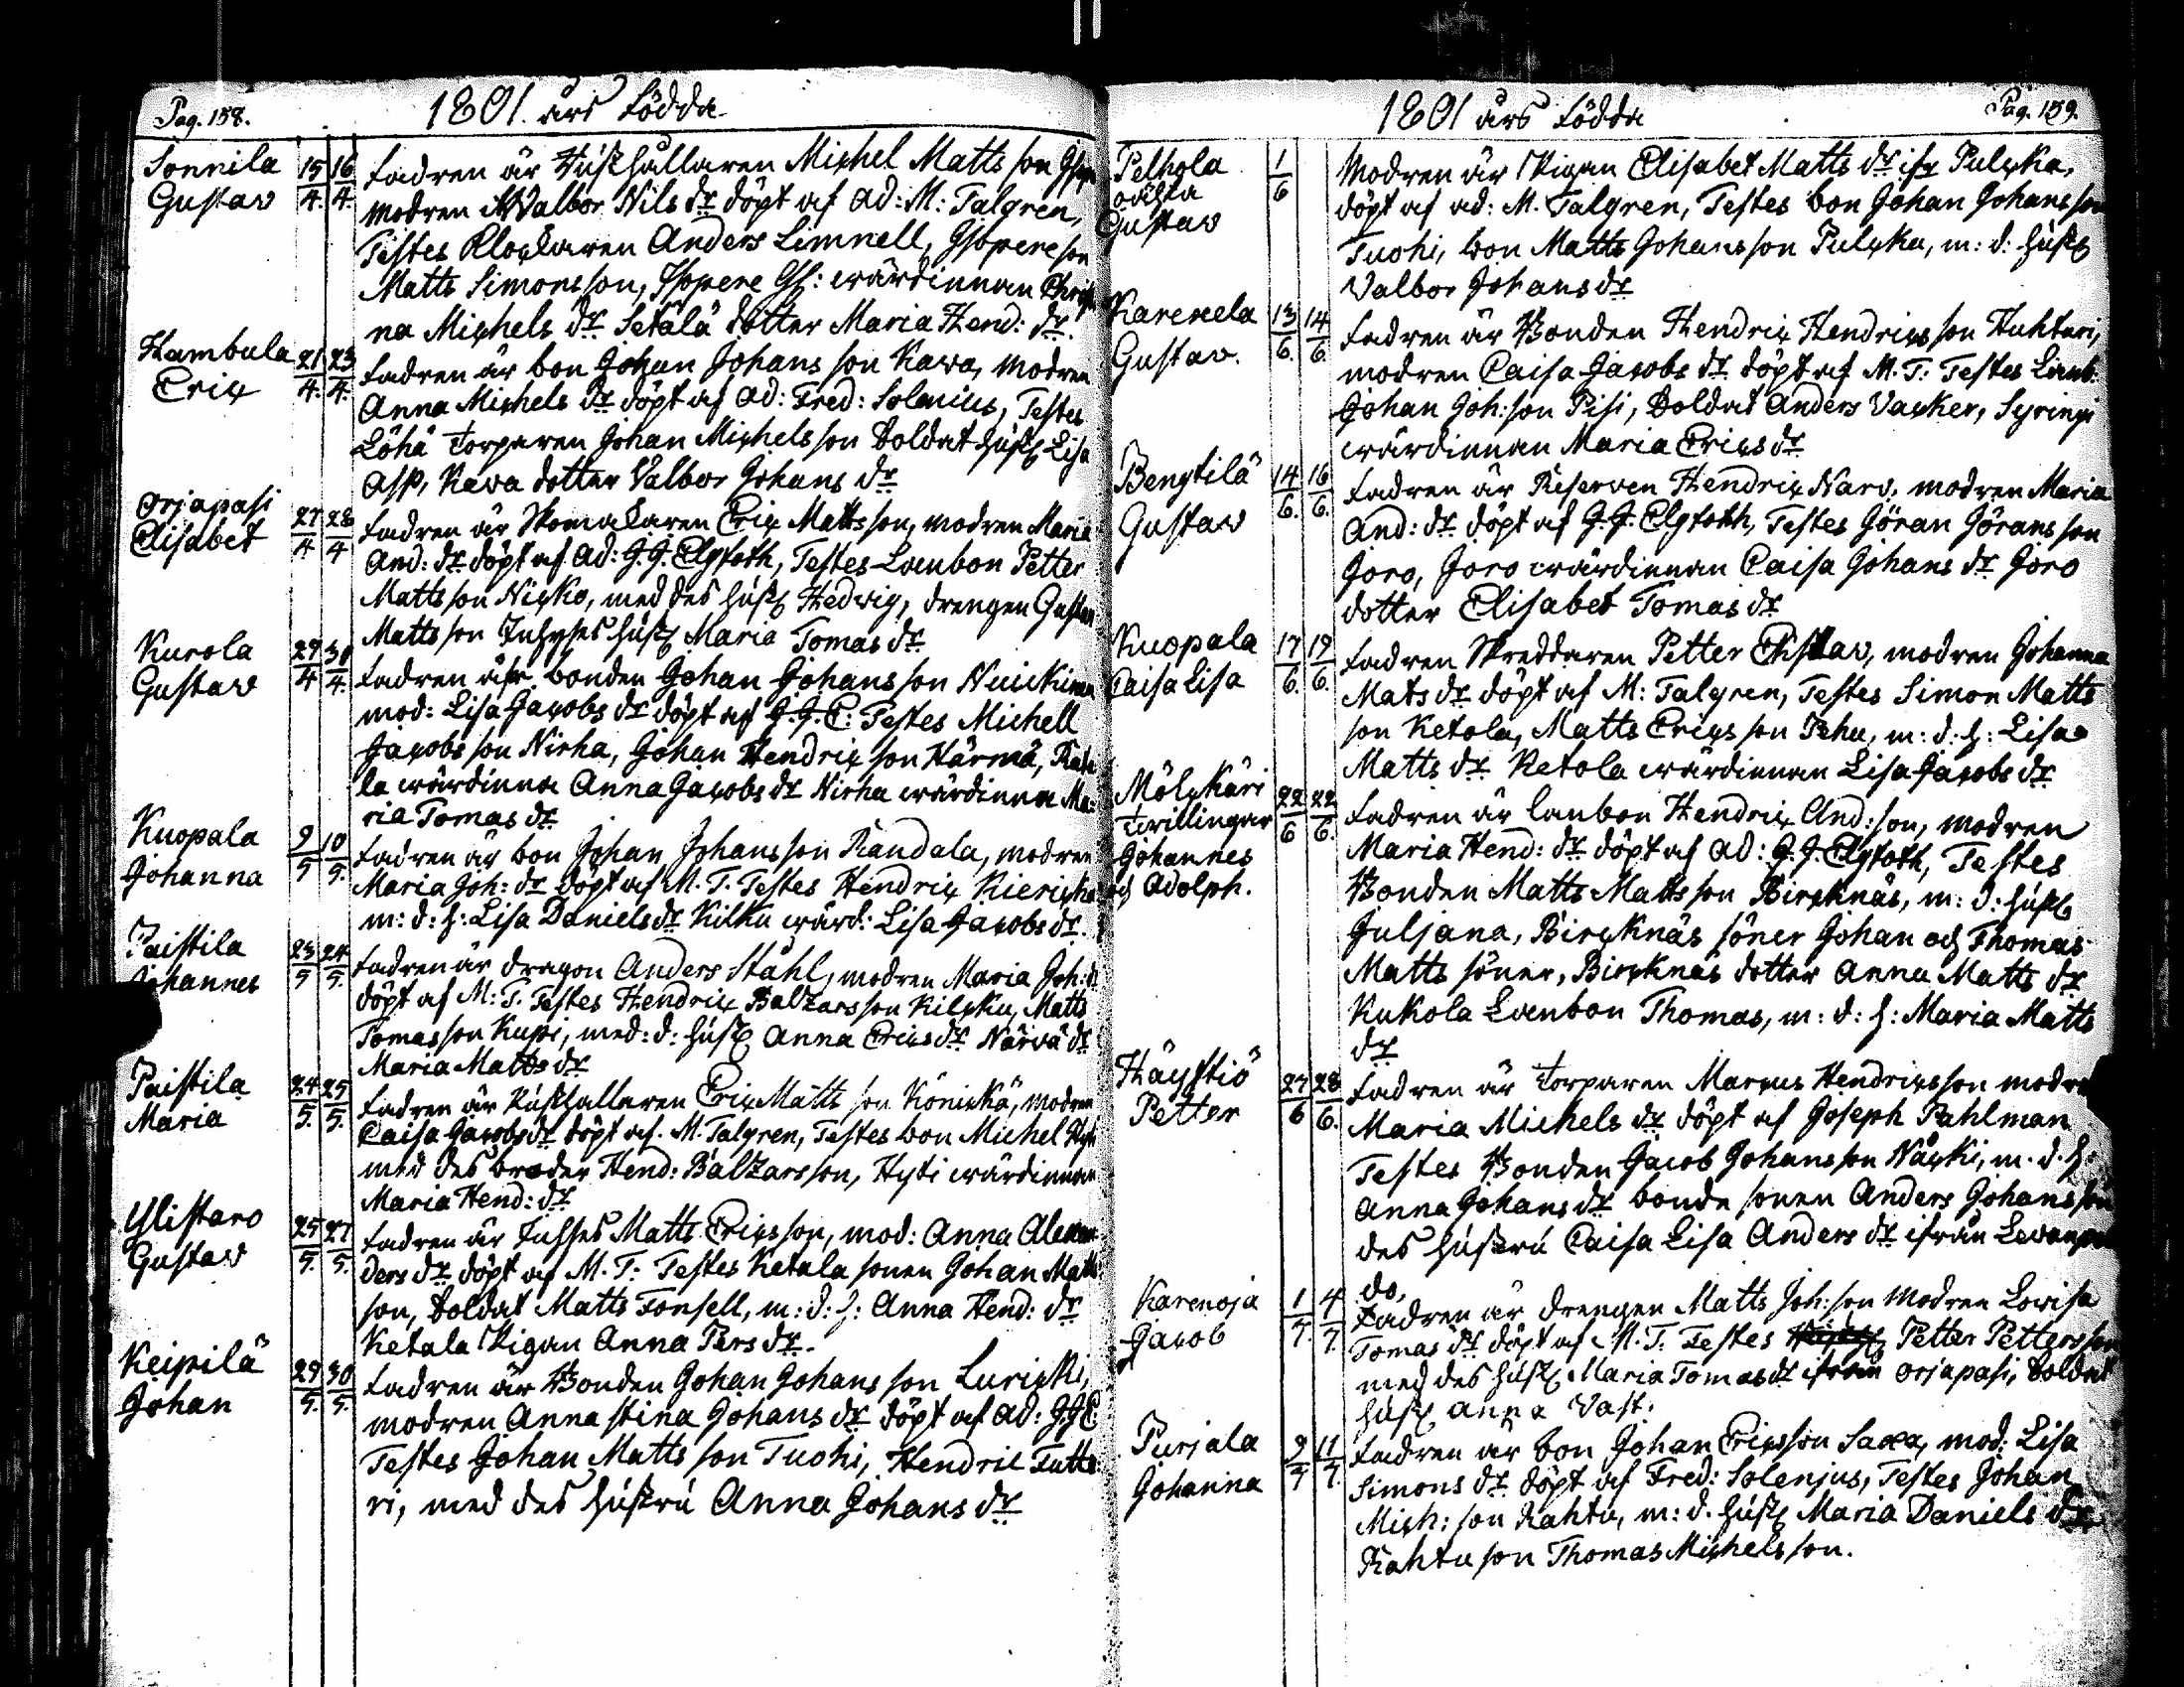 Pag. 158.
1801. års födda
Sonnila
Gustav
15/4. 16/4.
Fadren är Hushållaren Michel Matts son
modren Walbor Nils dr döpt af Ad: M: Talgren,
Testes Klockaren Anders Limnell,
Matts Simonsson, wärdinnan
na Michels dr Setälä dotter Maria Hend: dr
Hambula
Eric
21/4. 23/4.
Fadren är bon Johan Johans son Kawa, modren
Anna Michels dr döpt af Ad: Fred: Solenius, Testes
Löhä Torparen Johan Michels son Soldat hust Lisa
Asp, Kawa dotter Valbor Johans dr
Orjapasi
Elisabet
27/4 28/4
Fadren är Skomakaren Eric Matts son, modren Maria
And: dr döpt af Ad: G. J. Elgfoth, Testes Lanbon Petter
Matts son Nicko, med des hust Hedvig, drengen Gustav
Matts son Juhses hust Maria Tomas dr
Kurola
Gustav
29/4 30/4.
Fadren är bonden Johan Johans son
mod: Lisa Jacobs dr döpt af G. J. E: Testes Michell
Jacobs son Nirha, Johan Hendric son Härmä,
la wärdinna Anna Jacobs dr Nirha wärdinna Ma:
ria Tomas dr
Kuopala
Johanna
9/5 10/5.
Fadren är bon Johan Johans son Randala, modren
Maria Joh: dr döpt af M. T. Testes Hendric
m: d: h: Lisa Daniels dr Kilku wärd: Lisa Jacobs dr.
Paistila
Johannes
23/5 24/5.
Fadren är dragon Anders Ståhl, modren Maria Joh: d
döpt af M: T. Testes Hendric Baltzars son Kilcku, Matts
Tomas son Kuppi, med: d: hust Anna Erics dr Närvä dr
Maria Matts dr
Paistila
Maria
24/5. 25/5.
Fadren är Hushallaren Eric Matts son Könickä, modren
Caisa Jacobs dr döpt af. M. Talgren, Testes bon Michel
med des broder Hend: Baltzars son, Hyti wärdinnan
Maria Hend: dr
Ylistaro
Gustav
25/5. 27/5.
Fadren är Juhses Matts Erics son, mod: Anna Alexan
ders dr döpt af M. T: Testes Ketala sonen Johan Matts
son, Soldat Matts Fonsell, m: d: h: Anna Hend: dr
Ketala Pigan Anna Pers dr.
Keipilä
Johan
29/5. 30/5.
Fadren är Bonden Johan Johans son Luricki,
modren Anna Stina Johans dr döpt af Ad: G. J. E
Testes Johan Matts son Tuohi, Hendric Tutta
ri, med des hustru Anna Johans dr
1801 års födda
Pag. 159.
Pelhola
oächta
Gustav
1/6
Modren är Pigan Elisabet Matts dr ifr Pulcka,
döpt af ad: M. Talgren, Testes bon Johan Johans son
Tuohi, bon Matts Johans son Pulcka, m: d: hust
Valbor Johans dr
Karenela
Gustav.
13/6. 14/6.
Fadren är Bonden Hendric Hendrics son Huhtari,
modren Caisa Jacobs dr döpt af M. T: Testes Lanb.
Johan Joh: son Pisi, Soldat Anders Vacker,
wärdinnan Maria Erics dr
Bengtilä
Gustav
14/6. 16/6.
Fadren är Riserven Hendric Narv, modren Maria
And: dr döpt af G. J. Elgfoth, Testes Göran Görans son
Joro, Joro wärdinnan Caisa Johans dr Joro
dotter Elisabet Tomas dr
Kuopala
Caisa Lisa
17/6. 19/6.
Fadren Skreddaren Petter modren Johanna
Mats dr döpt af M: Talgren, Testes Simon Matts
son Ketola, Matts Erics son Pehu, m: d: h: Lisa
Matts dr Ketola wärdinnan Lisa Jacobs dr
Mölckäri
Tvillingar
Johannes
och Adolph.
22/6 22/6.
Fadren är lanbon Hendric And: son, modren
Maria Hend: dr döpt af Ad: G. J. Elgfoth, Testes
Bonden Matts Matts son Bircknäs, m: d: hust
Juljana, Bircknäs söner Johan och Thomas
Matts söner, Bircknäs dotter Anna Matts dr
Kukola Lanbon Thomas, m: d: h: Maria Matts
dr
Häystiö
Petter
27/6 28/6.
Fadren är Torparen Marcus Hendrics son modren
Maria Michels dr döpt af Joseph Pahlman
Testes Bonden Jacob Johans son Näcki, m. d. h:
Anna Johans dr bonde sonen Anders Johans son
des hustru Caisa Lisa Anders dr ifrån
do,
Karenoja
Jacob
1/7 4/7.
Fadren är drengen Matts Joh: son modren Lovisa
Tomas dr döpt af M. T: Testes Petter Petters son
med des hust Maria Tomas dr ifrån Orjapasi, Soldat
hust Anna Vast.
Purjala
Johanna
9/7 11/7.
Fadren är bon Johan Ericsson Saxa, mod: Lisa
Simons dr döpt af Fred: Solenius, Testes Johan
Mich: son Rahtu, m: d. hust Maria Daniels dr
Rahtu son Thomas Michels son.